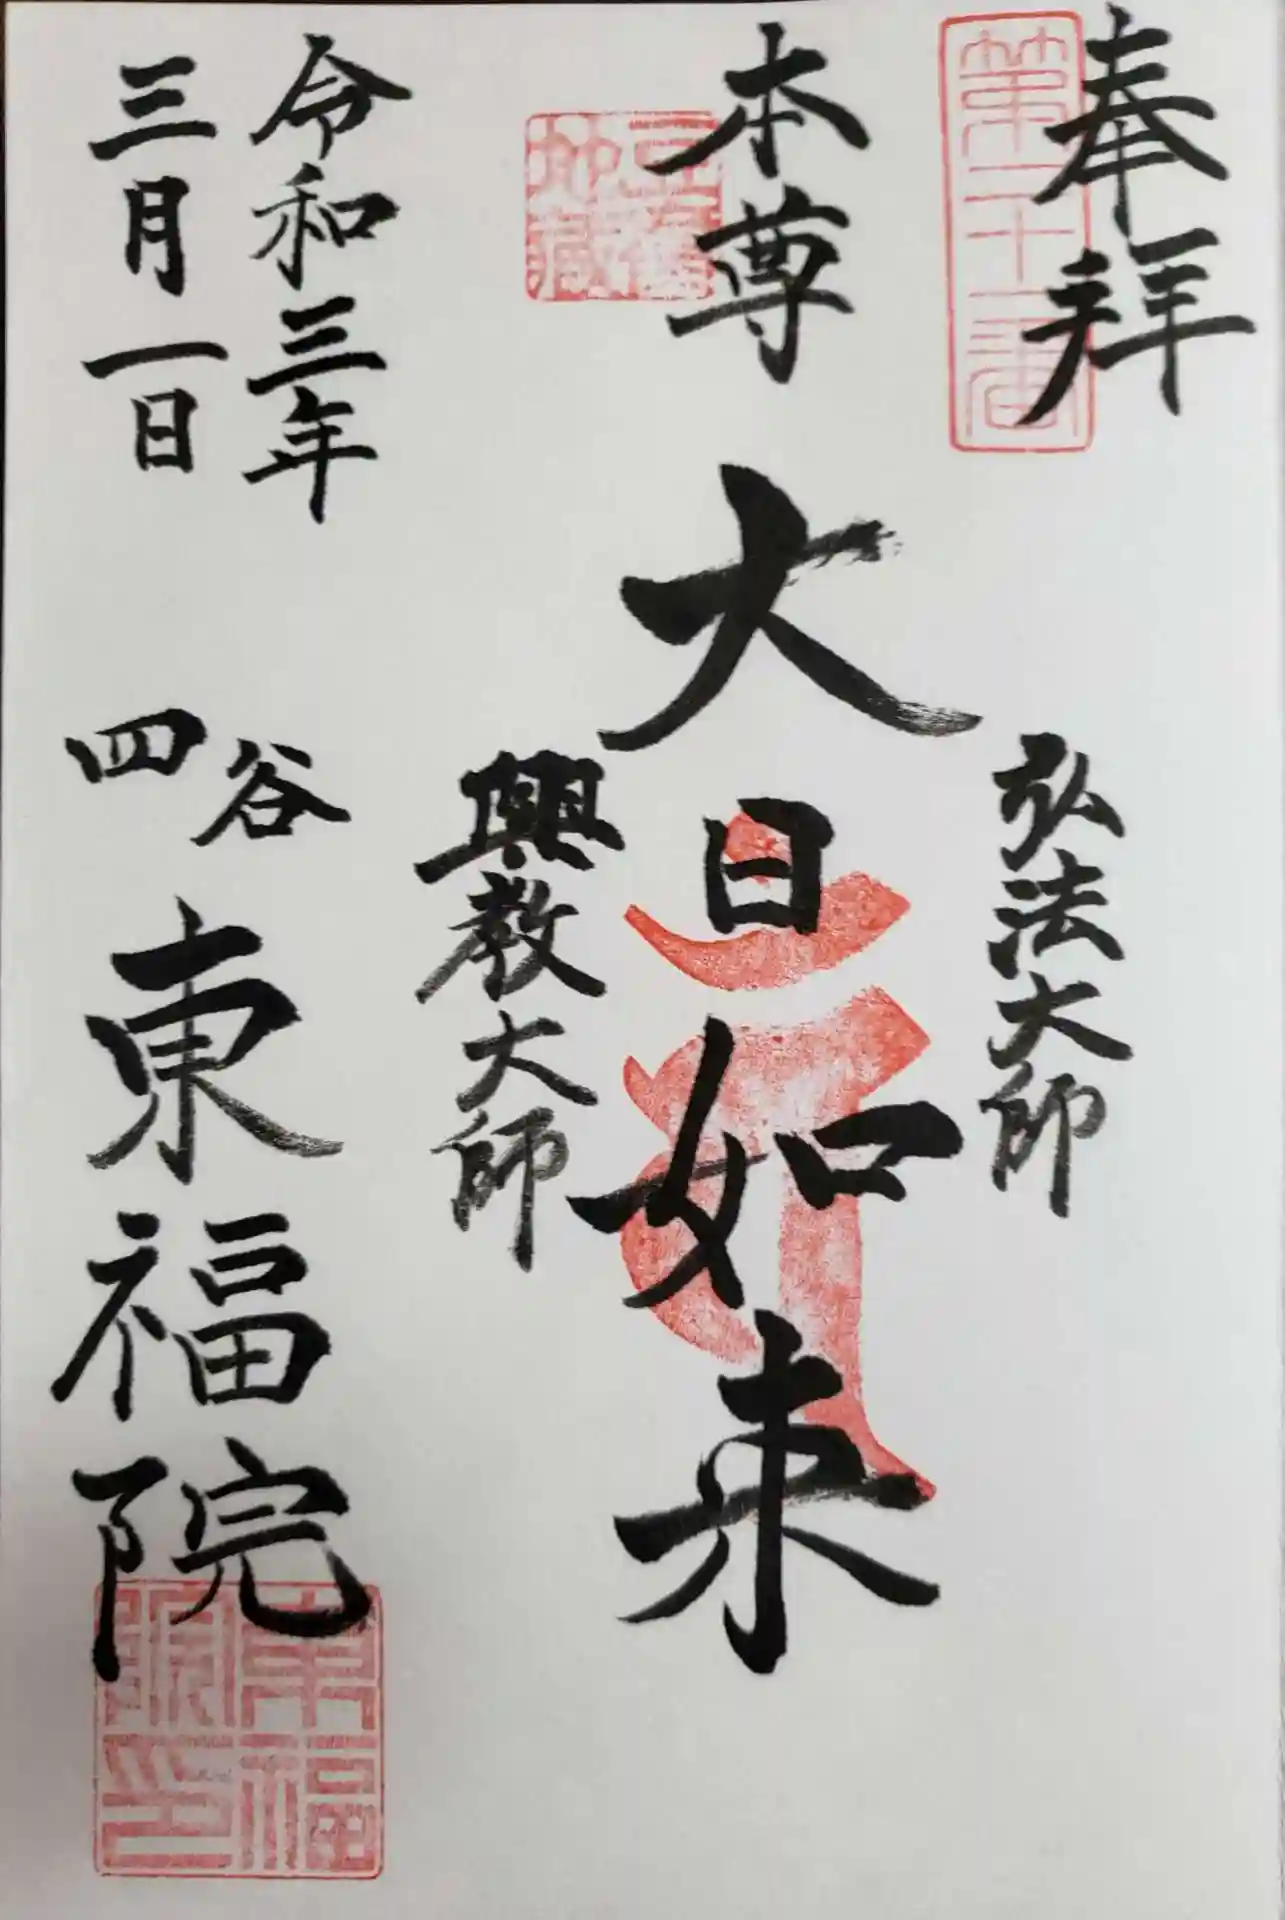 奉拜
第二十一番
弘法大師
本尊
大日如来
豆腐地蔵
興教大師
令和三年
三月一日
四谷
東福院
東福院印